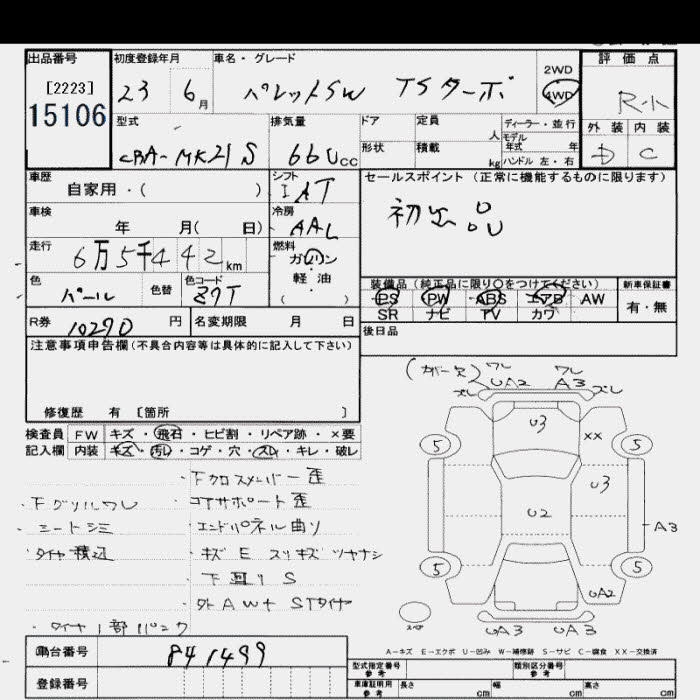 出品番号 初度登録年月 車名・グレード 評価点
[2223]
15106
23 6月 パレットSW TSターボ 2WD 4WD R-ﾊ
型式 排気量 ドア 定員 人 ディーラー・並行 外装 内装
モデル年式 年
CBA-MK21S 660cc 形状 積載 kg ハンドル 左・右 D C
車歴 シフト セールスポイント (正常に機能するものに限ります)
自家用・( ) IAT
車検 冷房 初出品
年 月( 日) AAC
走行 燃料
6万5千442km ガソリン
軽油
( )
色 色替 色コード 装備品 (純正品に限り○をつけてください) 新車保証書
パール Z7T PS PW ABS エアB AW 有・無
SR ナビ TV カワ
R券 10290円 名変期限 月 日 後日品
注意事項申告欄(不具合内容等は具体的に記入して下さい)
修復歴 有 [箇所 ]
検査員 FW キズ・飛石・ヒビ割・リペア跡・×要
記入欄 内装 キズ・汚れ・コゲ・穴・スレ・キレ・破レ
・下クロスメンバー歪
・下グリルワレ ・コアサポート歪
・シートシミ ・エンドパネル曲り
・タイヤ積込 ・キズ E スリキズ ツヤナシ
・下回りS
・外AW+STタイヤ
・タイヤ1部パンク
(カバー欠) ワレ ワレ
ズレ UA2 A3 ズレ
U3
5 XX 5
U3
U2
A3
5 5
UA2
スペア UA3 UA3
A-キズ E-エクボ U-凹み W-補修跡 S-サビ C-腐食 XX-交換済
車台番号 841499
登録番号
型式指定番号 参考 類別区分番号 参考
車庫証明用 参考 長さ cm 幅 cm 高さ cm